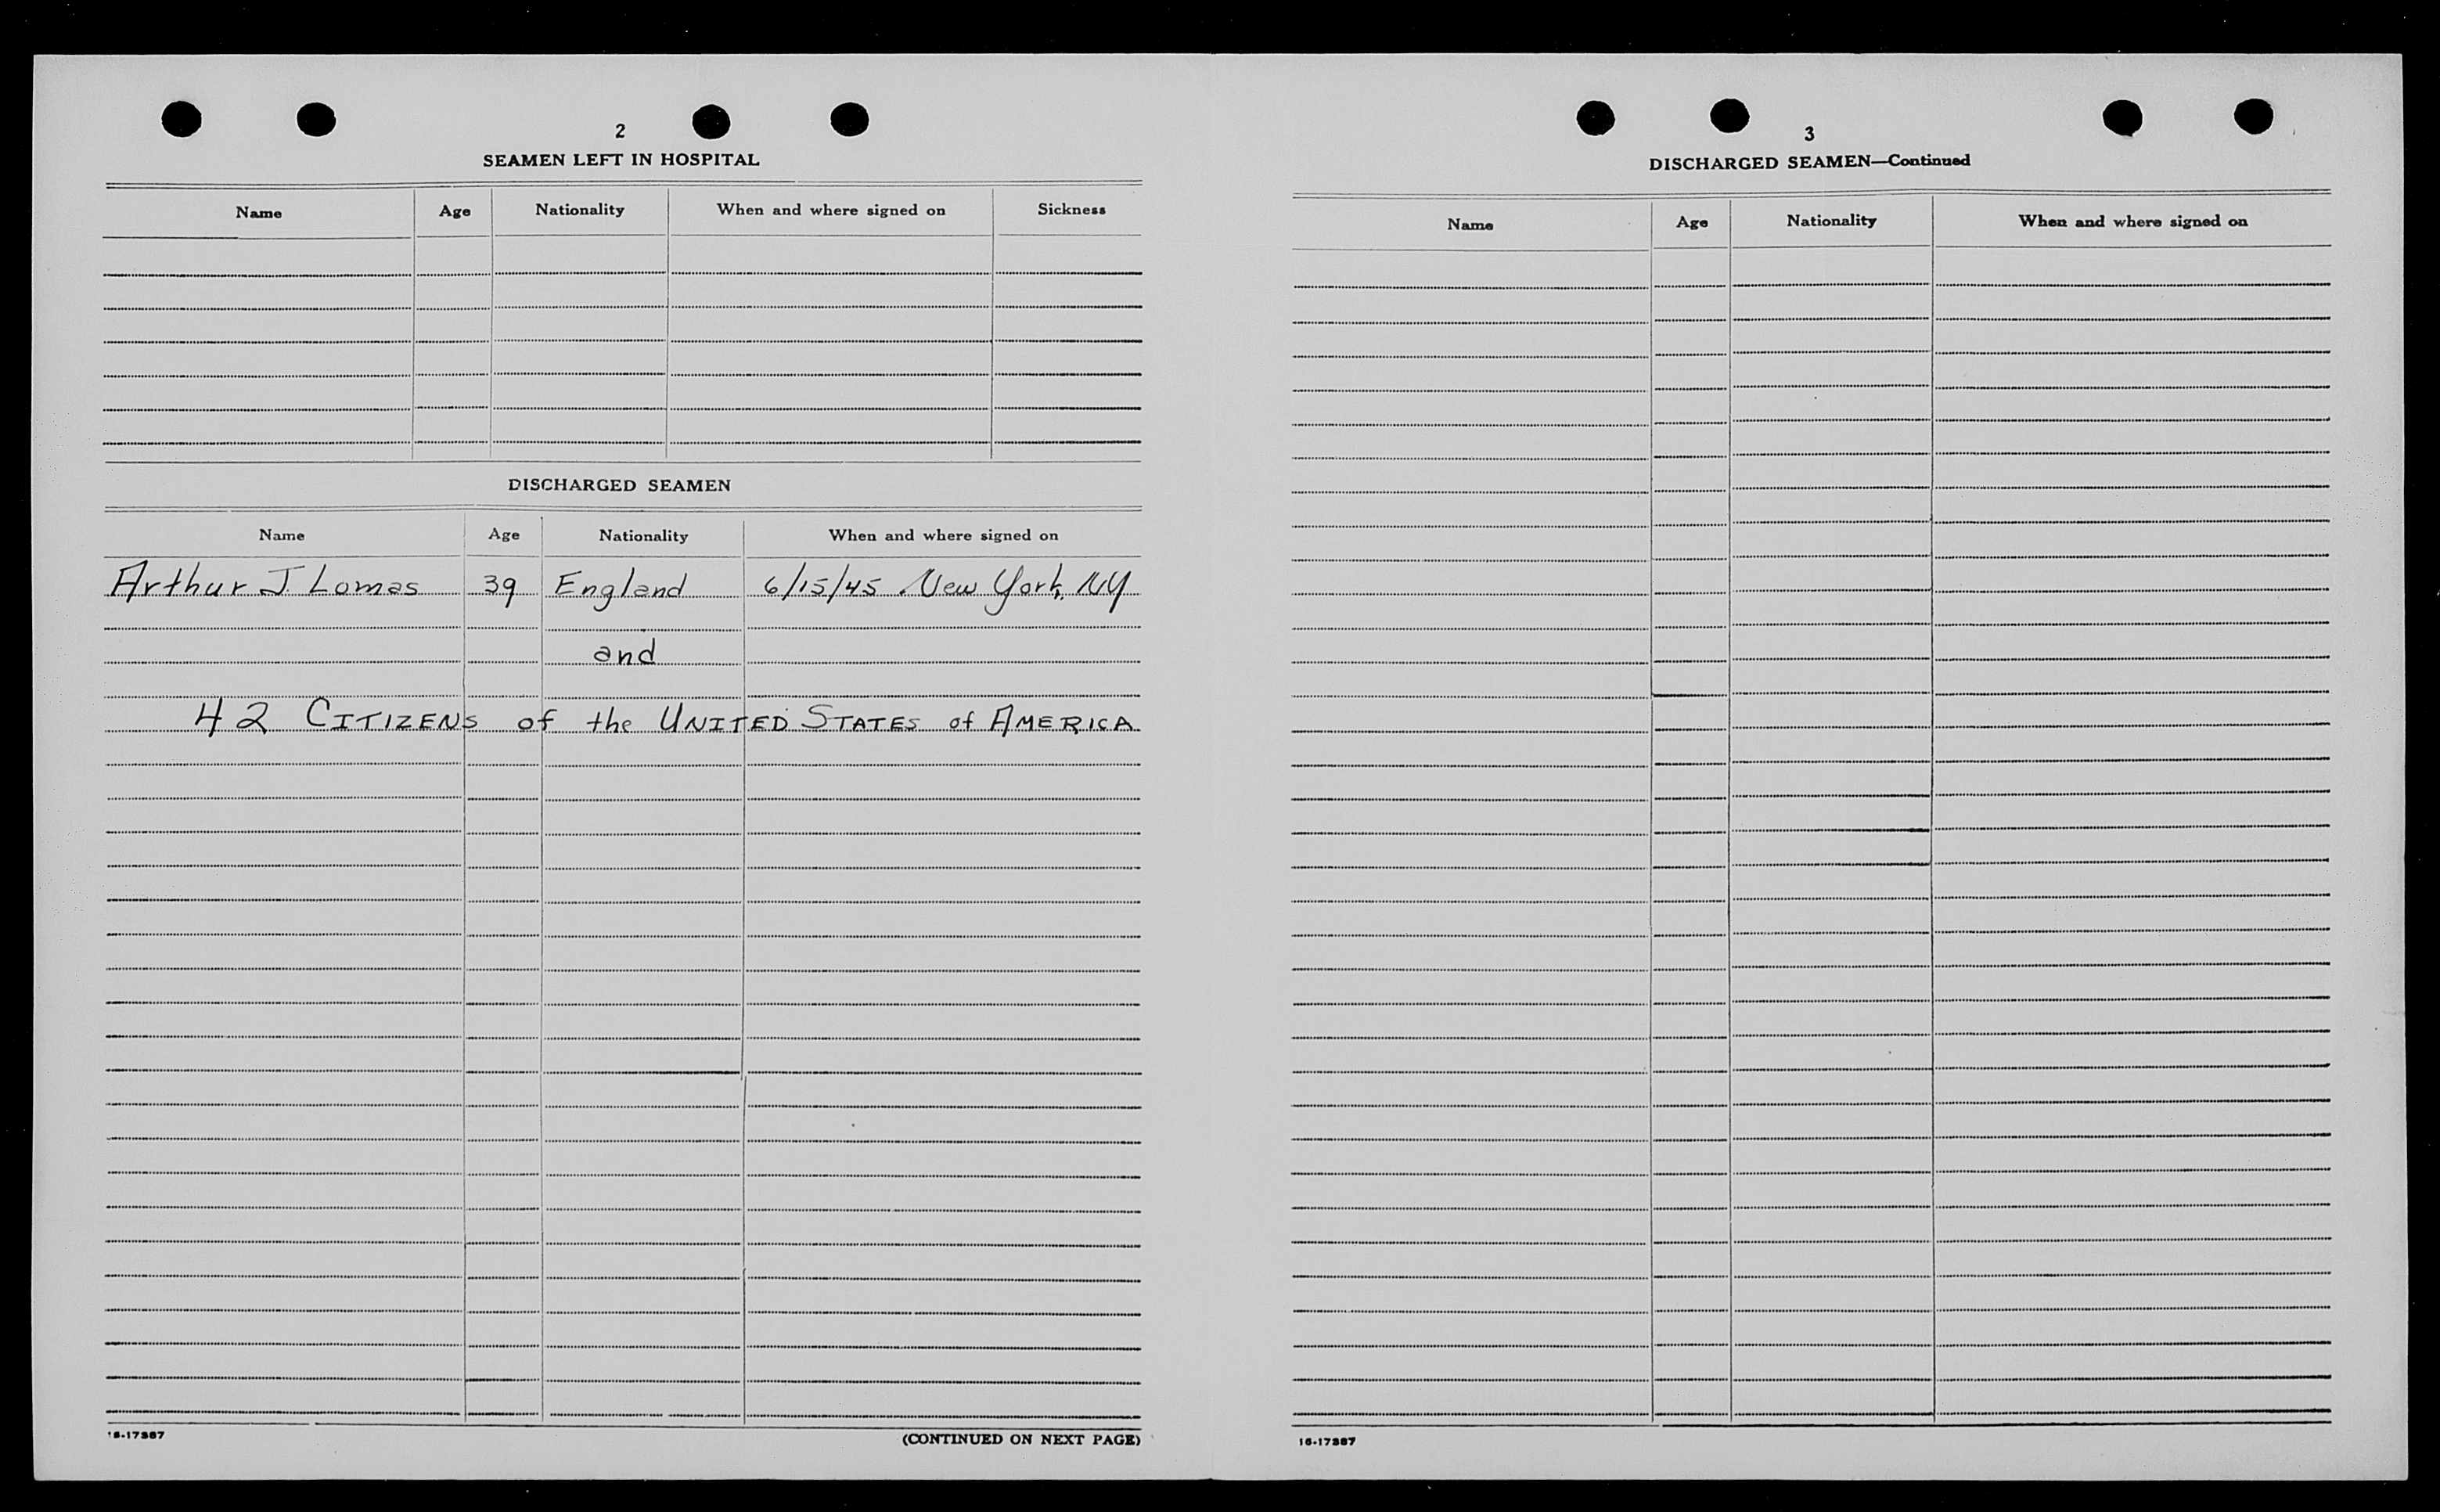 2
SEAMEN LEFT IN HOSPITAL
Name Age Nationality When and where signed on Sickness
DISCHARGED SEAMEN
Name Age Nationality When and where signed on
Arthur J. Lomas 39 England 6/15/45 New York, NY
and
42 CITIZENS of the UNITED STATES of AMERICA
16-17387
(CONTINUED ON NEXT PAGE)
3
DISCHARGED SEAMEN—Continued
Name Age Nationality When and where signed on
16-17387